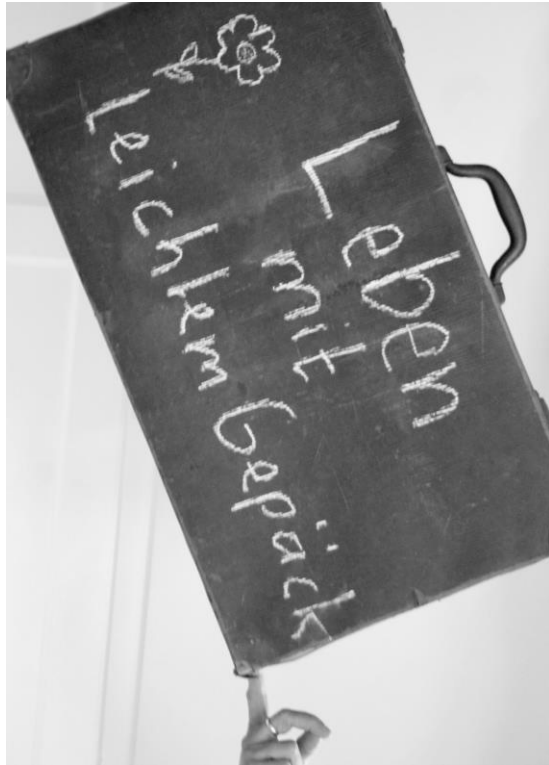 Leben
mit
leichtem Gepäck